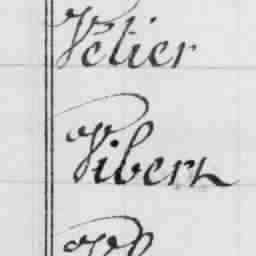 Vetier
Vibert